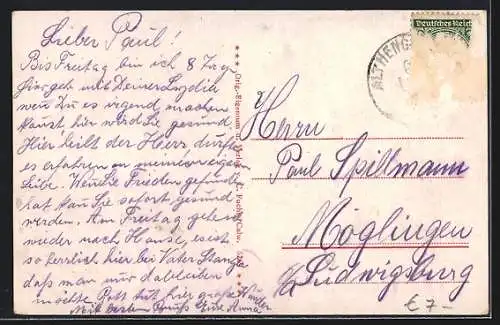 Lieber Paul!
Bis Freitag bin ich 8 Tag
hier geh mit Deiner Lydia
wen Du es irgend machen
kanst hier wird Sie gesund
Hier heilt der Herr, durfte
es erfahren an meinem eigenen
Leibe. Wen Sie Frieden gefunden
hat kan Sie sofort gesund
werden. Am Freitag gehe ich
wieder nach Hause, es ist
so herrlich hier bei Vater Stanger
daß man nur dableiben
möchte. Gott tut hier große Wunder
Mit besten Gruß Eure Anna
Orig.-Eigentum u. Verlag
Deutsches Reich
ALTHENG
Herrn
Paul Spillmann
Möglingen
b/ Ludwigsburg
€ 7-